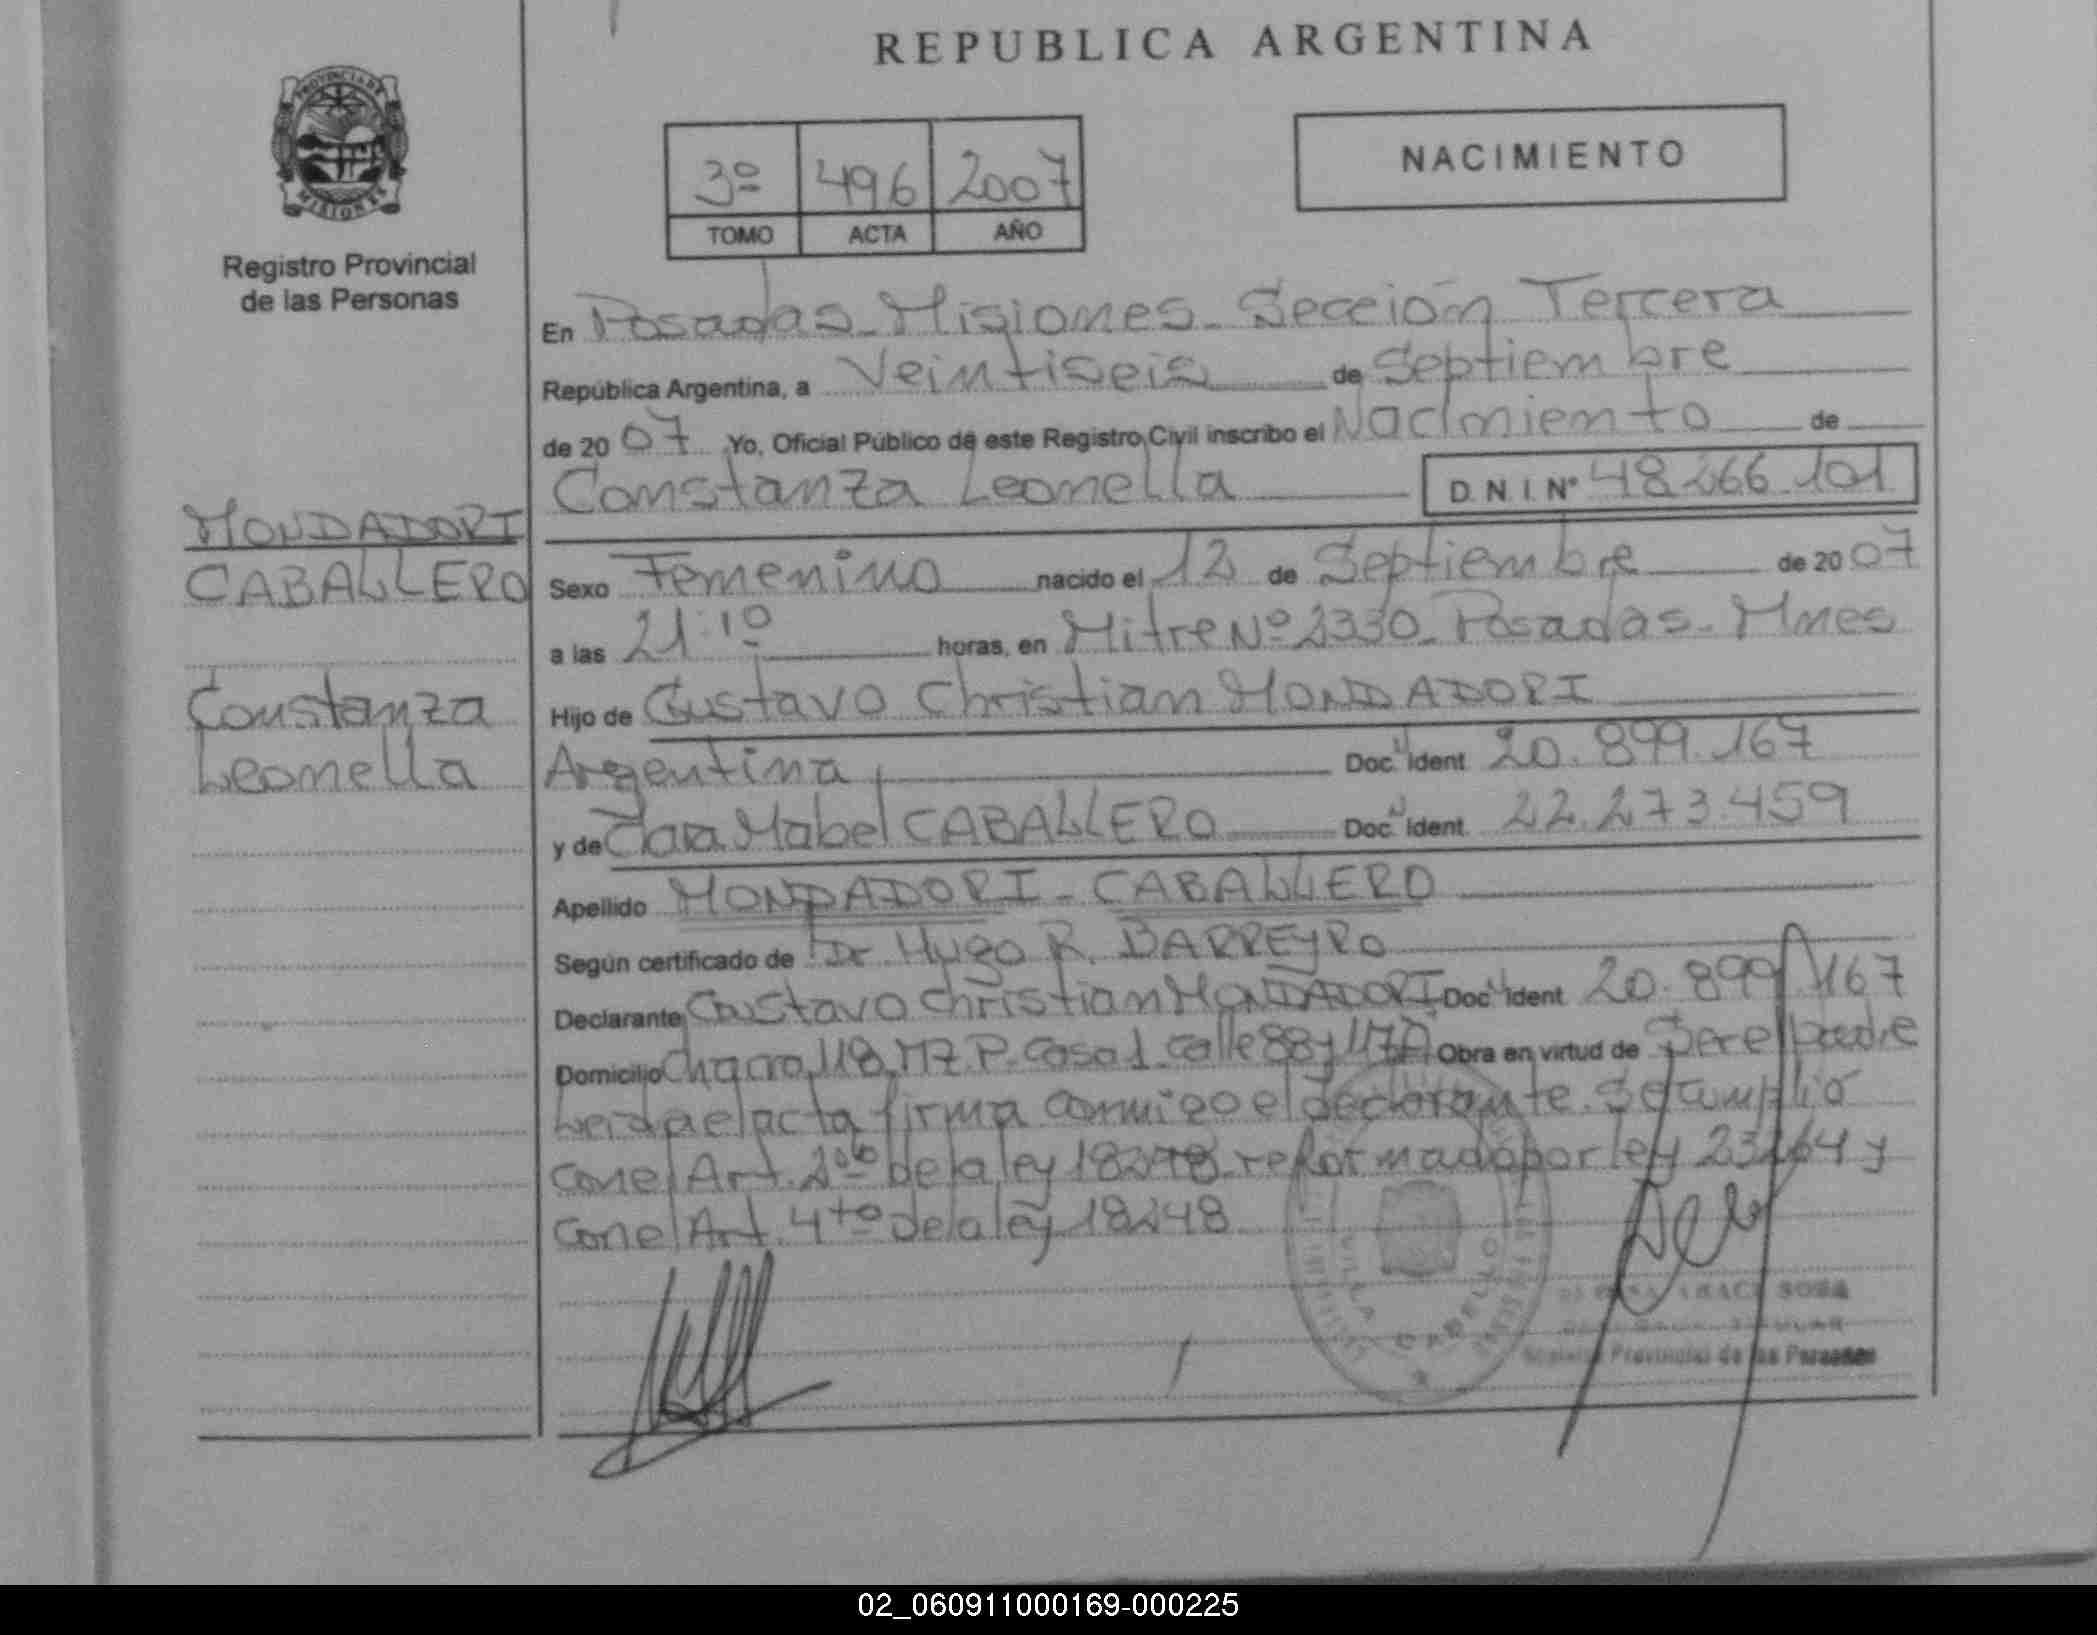 REPUBLICA ARGENTINA
PROVINCIA DE
MISIONES
Registro Provincial
de las Personas
3º 496 2007
TOMO ACTA AÑO
NACIMIENTO
MONDADORI
CABALLERO
Constanza
Leonella
En Posadas - Misiones - Sección Tercera
República Argentina, a Veintiseis de Septiembre
de 2007 Yo, Oficial Público de este Registro Civil inscribo el Nacimiento de
Constanza Leonella D.N.I. Nº 48.266.101
Sexo Femenino nacido el 12 de Septiembre de 2007
a las 21:10 horas, en Mitre Nº 2330 - Posadas - Mnes
Hijo de Gustavo Christian MONDADORI
Argentina Doc. Ident 20.899.167
y de Mabel CABALLERO Doc. Ident. 22.273.459
Apellido MONDADORI - CABALLERO
Según certificado de Dr. Hugo R. BARREYRO
Declarante Gustavo Christian MONDADORI Doc Ident 20.899.167
Domicilio Chacra 118 MZ. P. Casa 1 Calle 88 y Obra en virtud de Ser el padre
Leida el acta firma conmigo el declarante. Se cumplió
con el Art. 2do de la ley reformado por ley 23264 y
con el Art. 4to de la ley 18248
VILLA CABELLO
SOSA
Provincial de las Personas
02_060911000169-000225